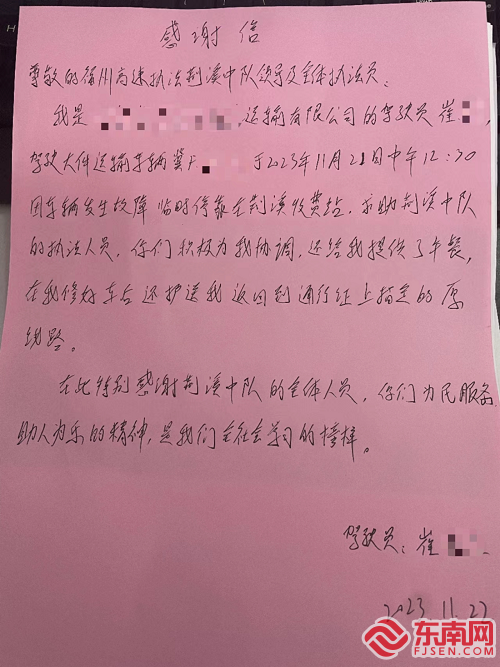 感谢信
尊敬的福州高速执法荆溪中队领导及全体执法员:
我是 运输有限公司的驾驶员崔
驾驶大件运输车辆冀F 于2023年11月21日中午12:30
因车辆发生故障临时停靠在荆溪收费站,求助荆溪中队
的执法人员,你们积极为我协调,还给我提供了午餐,
在我修好车后还护送我返回到通行证上指定的原
线路。
在此特别感谢荆溪中队的全体人员,你们为民服务
助人为乐的精神,是我们全社会学习的榜样。
驾驶员:崔
2023.11.22
东南网
FJSEN.COM